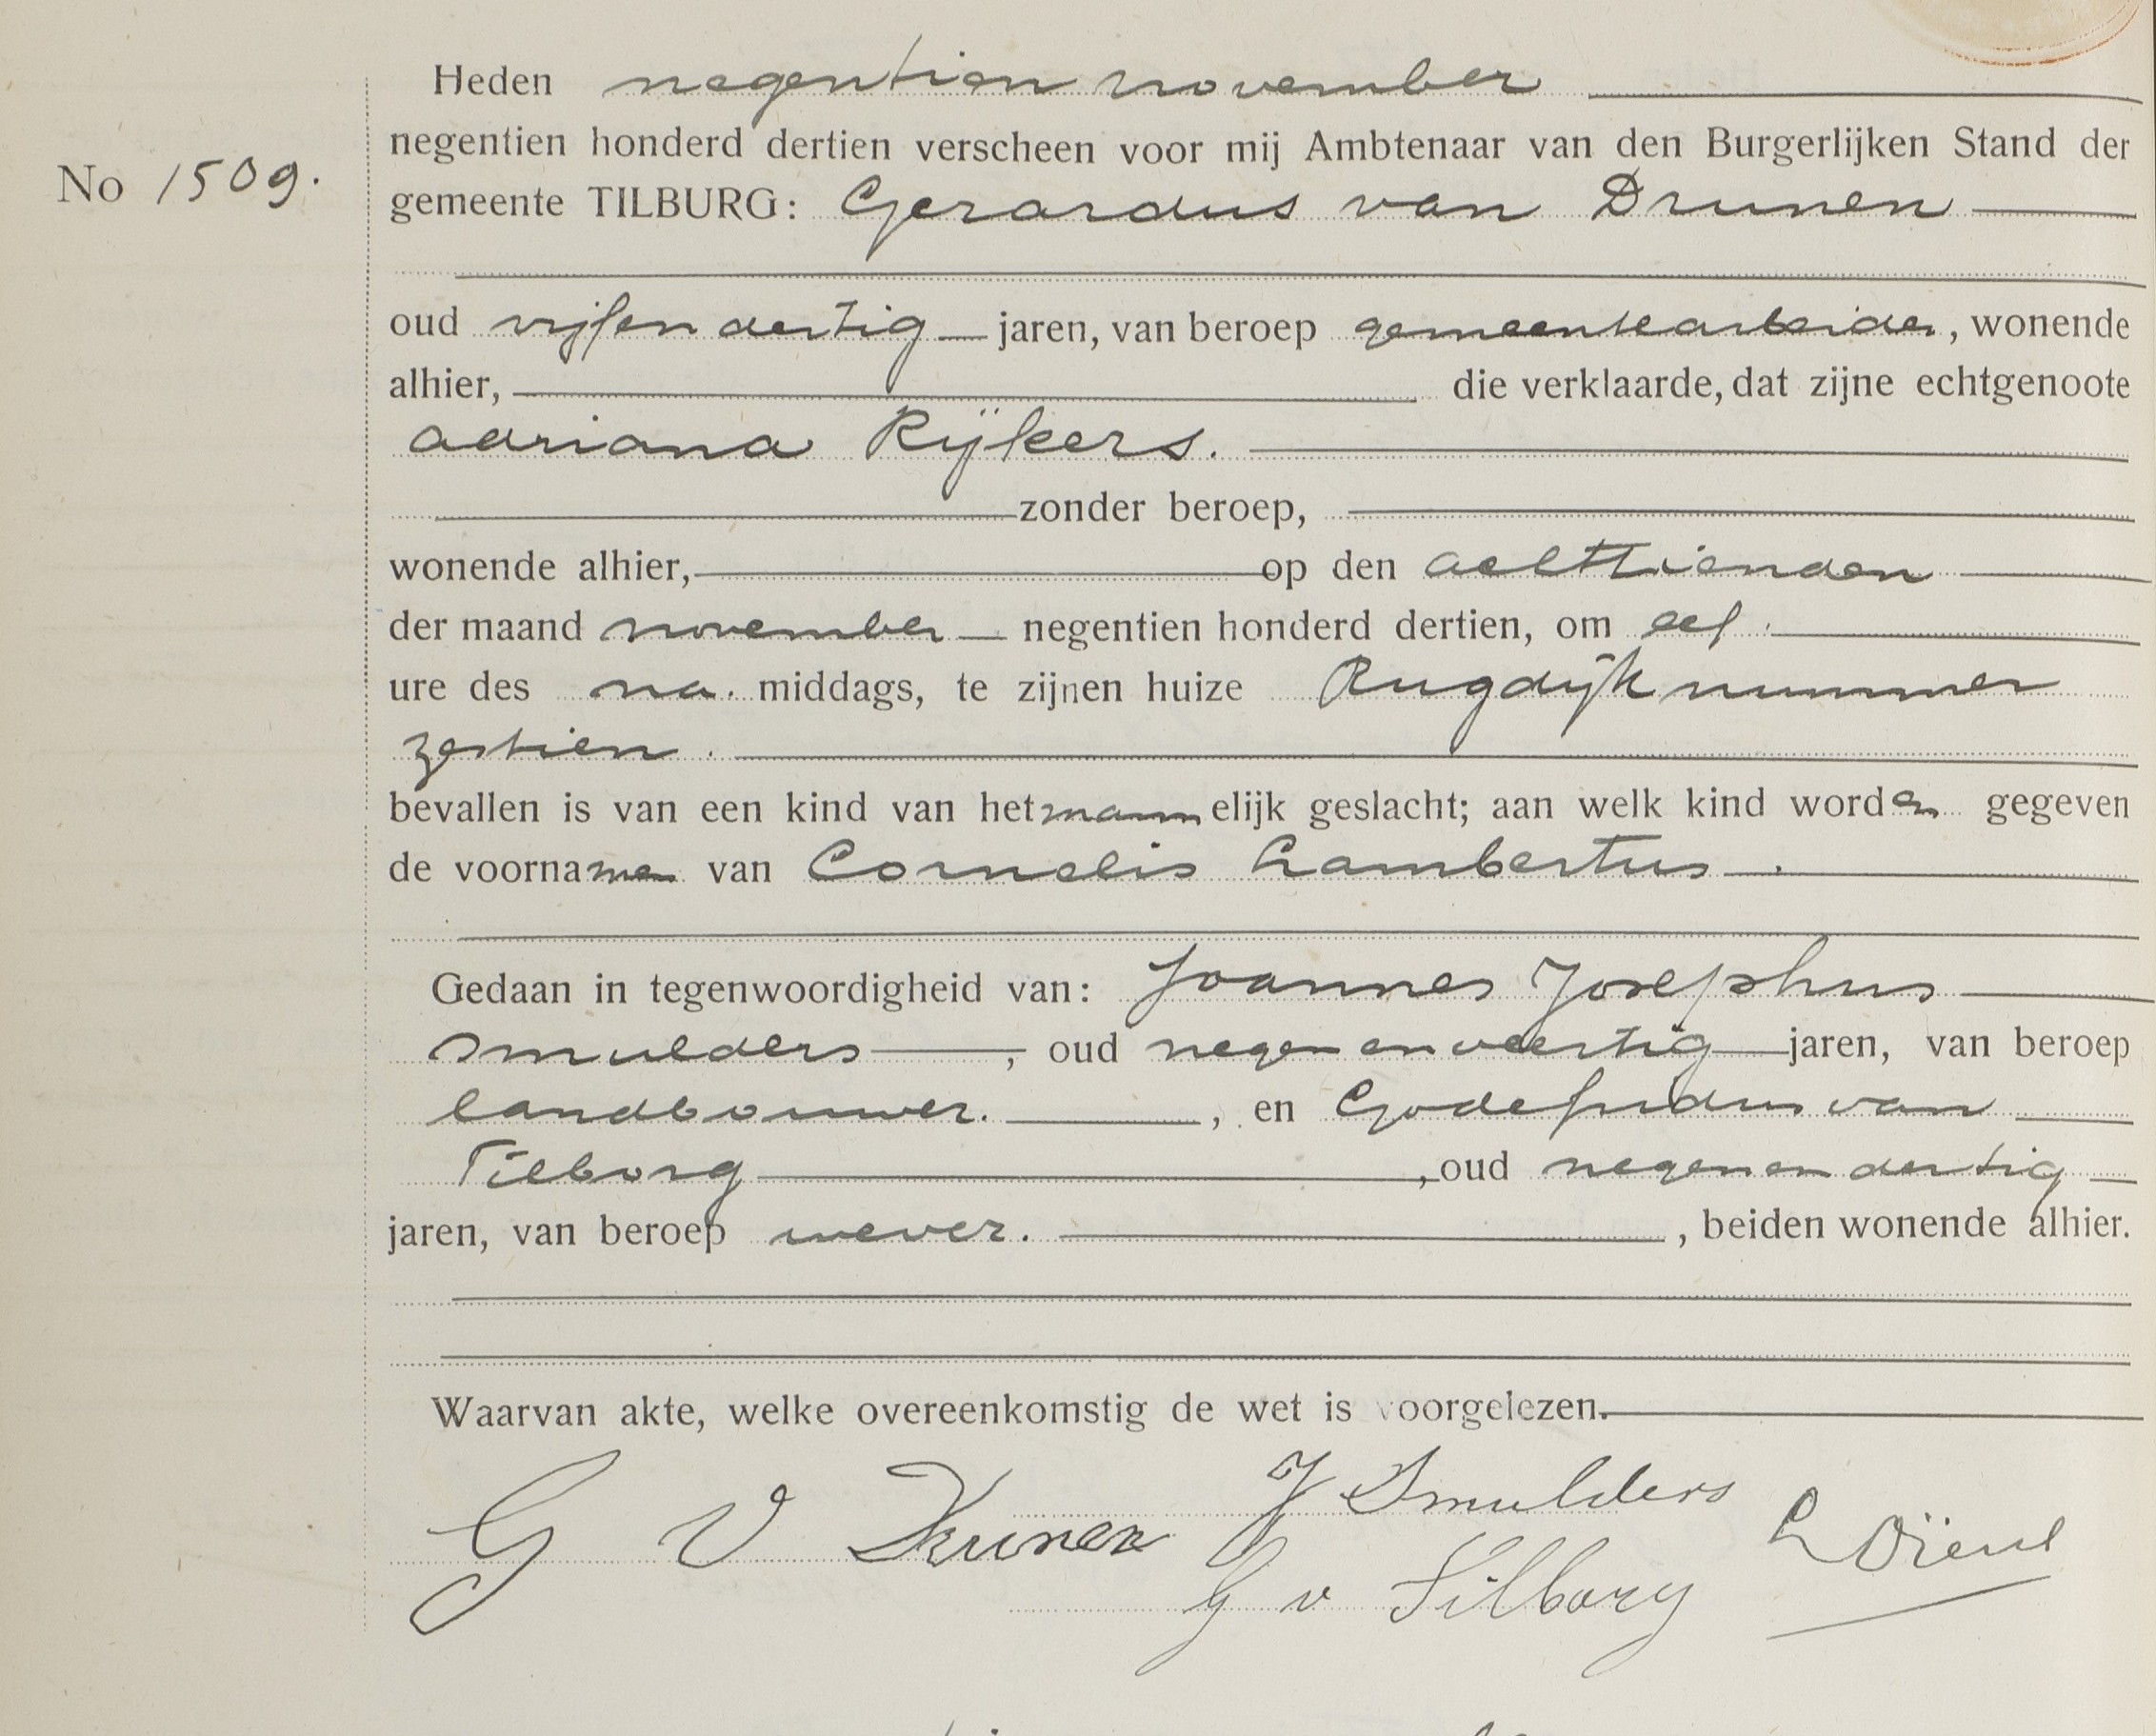 Heden negentien november
negentien honderd dertien verscheen voor mij Ambtenaar van den Burgerlijken Stand der
No 1509.
gemeente TILBURG: Gerardus van Drunen
oud vijfendertig jaren, van beroep gemeentearbeider, wonende
alhier, die verklaarde, dat zijne echtgenoote
Adriana Rijkers.
zonder beroep,
wonende alhier, op den achttienden
der maand november negentien honderd dertien, om elf
ure des na. middags, te zijnen huize Rugdijk nummer
zestien.
bevallen is van een kind van het mannelijk geslacht; aan welk kind worden gegeven
de voornamen van Cornelis Lambertus.
Gedaan in tegenwoordigheid van: Joannes Josephus
Smulders, oud negenenveertig jaren, van beroep
landbouwer., en Godefridus van
Tilborg, oud negenendertig
jaren, van beroep wever., beiden wonende alhier.
Waarvan akte, welke overeenkomstig de wet is voorgelezen.
J Smulders
G V Drunen
G v Tilborg